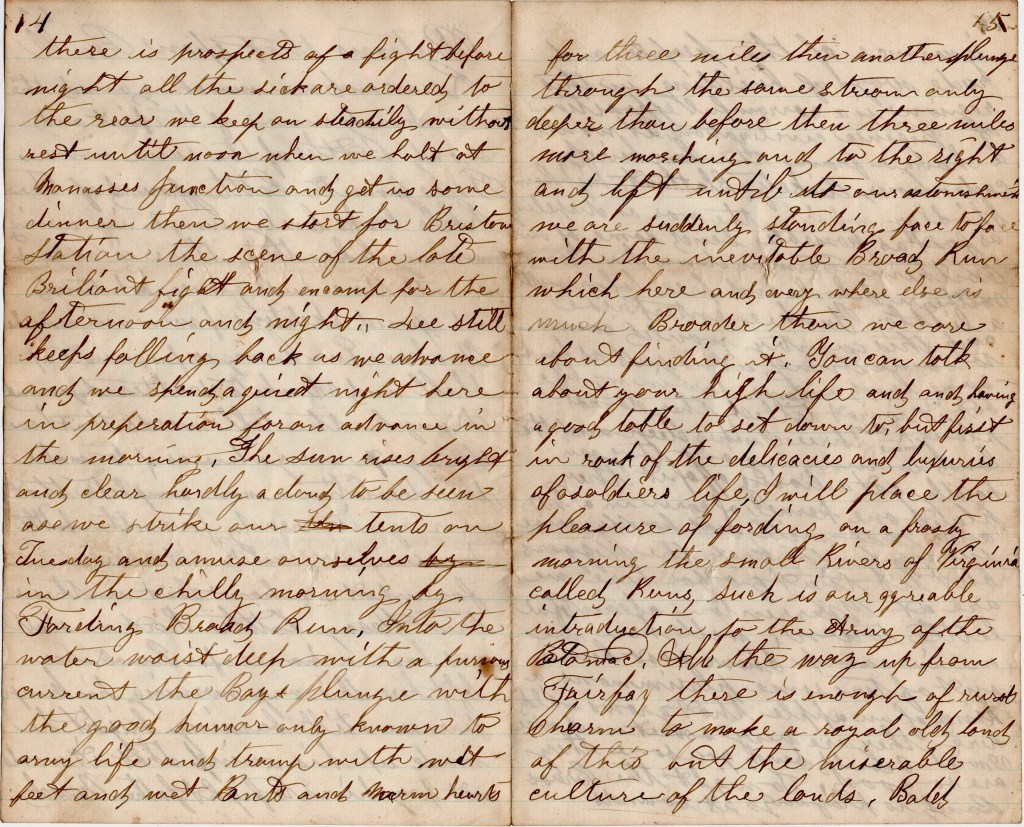 14
there is prospects of a fight before
night all the sick are ordered to
the rear we keep on steadily without
rest until noon when we halt at
Manasses Junction and get us some
dinner then we start for Bristow
Station the scene of the late
Briliant fight and encamp for the
afternoon and night,, Lee still
keeps falling back as we advance
and we spend a quiet night here
in preperation for an advance in
the morning, The sun rises bright
and clear hardly a cloud to be seen
as we strike our tents on
Tuesday and amuse ourselves by
in the chilly morning by
Fording Broad Run, Into the
water waist deep with a furious
current the Boys plunge with
the good humor only known to
army life and tramp with wet
feet and wet Pants and warm hearts
15
for three miles then another plunge
through the same stream only
deeper than before then three miles
more marching and to the right
and left until to our astonishment
we are suddenly standing face to face
with the inevitable Broad Run
which here and every where else is
much Broader than we care
about finding it. You can talk
about your high life and and having
a good table to set down to, but first
in rank of the delicacies and luxuries
of a soldiers life, I will place the
pleasure of fording on a frosty
morning the small Rivers of Virginia
called Runs, such is our agreable
introduction to the Army of the
Potomac. All the way up from
Fairfax there is enough of rural
charm to make a royal old land
of this but the miserable
culture of the lands, Bald